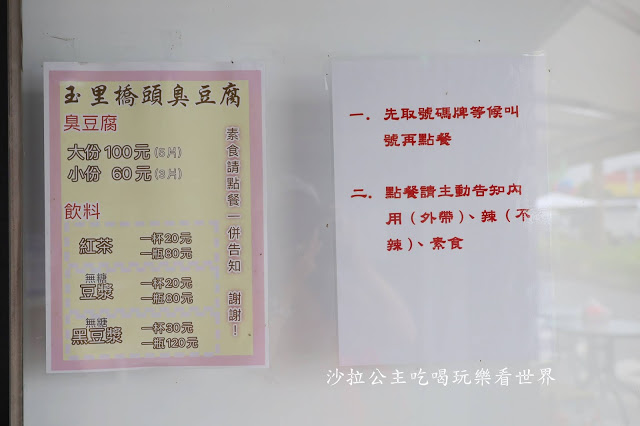 玉里橋頭臭豆腐
臭豆腐
大份100元(5片)
小份 60元(3片)
飲料
紅茶
一杯20元
一瓶80元
無糖
豆漿
一杯20元
一瓶80元
無糖
黑豆漿
一杯30元
一瓶120元
素食請點餐一併告知 謝謝！
一．先取號碼牌等候叫
號再點餐
二．點餐請主動告知內
用（外帶）、辣（不
辣）、素食
沙拉公主吃喝玩樂看世界